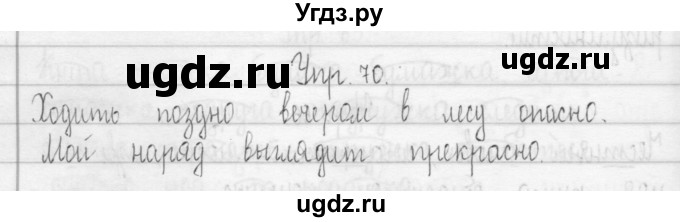 Угдз.ру
Упр. 70.
ugdz.ru ugdz.ru
Ходить поздно вечером в лесу опасно.
Мой наряд выглядит прекрасно.
ugdz.ru ugdz.ru
ugdz.ru